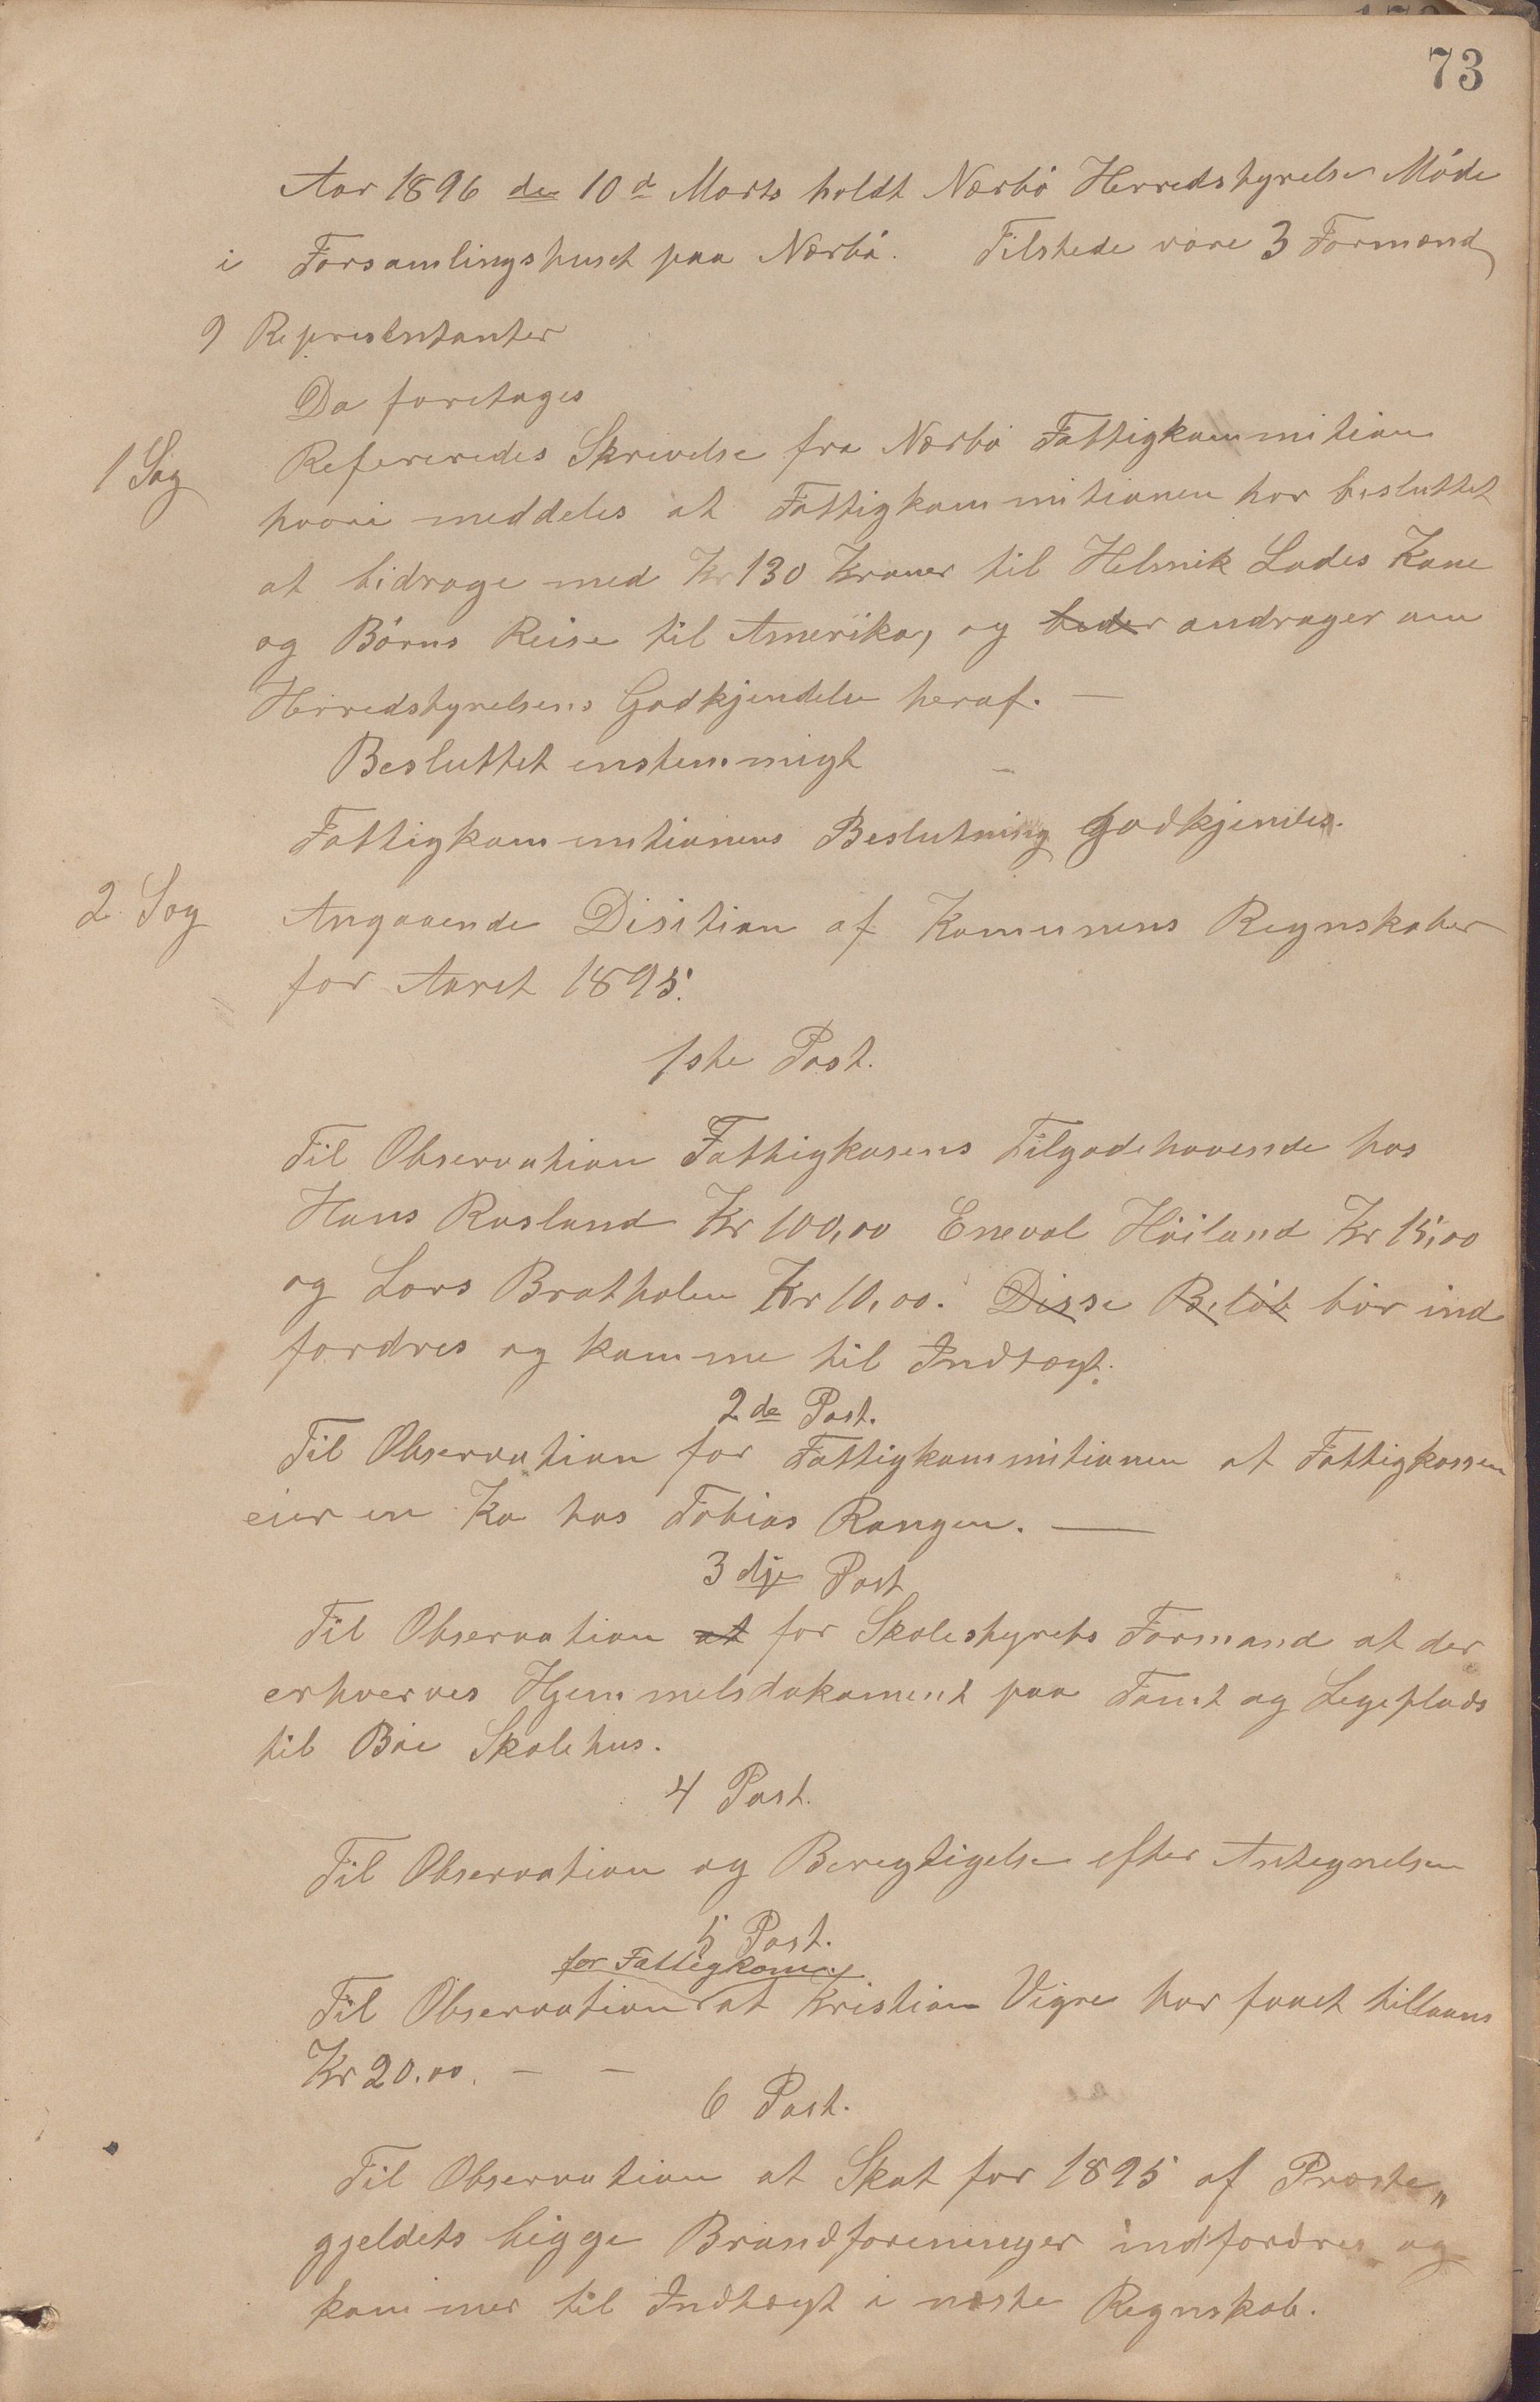 73
Aar 1896 den 10d Marts holdt Nærbö Herredstyrelse Möde
i Forsamlingshuset paa Nærbö. Tilstede vare 3 Formænd
9 Representanter
Da foretages
1 Sag Refereredes Skrivelse fra Nærbö Fattigkommition
hvori meddeles at Fattigkommitionen har besluttet
at bidrage med Kr 130 Kroner til Helmik Lodes Kone
og Börns Reise til Amerika, og beder andrager om
Herredstyrelsens Godkjendelse heraf. —
Besluttet enstemmigt —
Fattigkommitionens Beslutning Godkjendes.
2 Sag Angaaende Disition af Komunens Regnskaber
for Aaret 1895.
1ste Post.
Til Observation Fattigkasens Tilgodehavende hos
Hans Rasland Kr 100,00 Eneval Höiland Kr 15,00
og Lars Bratholen Kr 10,00. Disse Belöb bör ind
fordres og komme til Indtægt.
2de Post.
Til Observation for Fattigkommitionen at Fattigkassen
eier en Ko hos Tobias Rangen. —
3dje Post
Til Observation at for Skolestyrets Formand at der
erhverves Hjemmelsdokament paa Tomt og Legeplads
til Böe Skolehus.
4 Post.
Til Observation og Beregtigelse efter Antegnelsen
5 Post.
for Fattigkomm.
Til Observation at Kristian Vigre har faaet tillaans
Kr 20.00. — —
6 Post.
Til Observation at Skat for 1895 af Præste„
gjeldets begge Brandforeninger indfordres og
kommer til Indtægt i næste Regnskab.